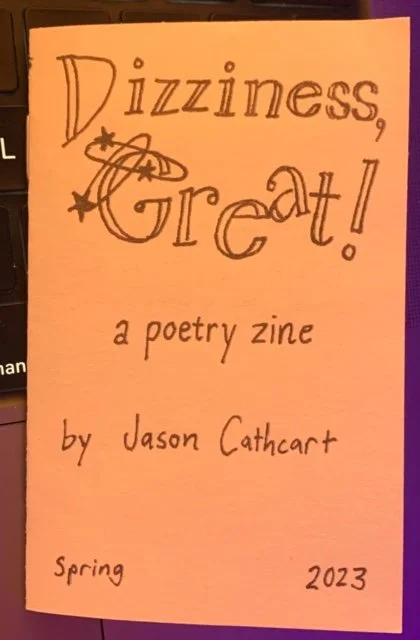 Dizziness,
Great!
a poetry zine
by Jason Cathcart
Spring 2023
L